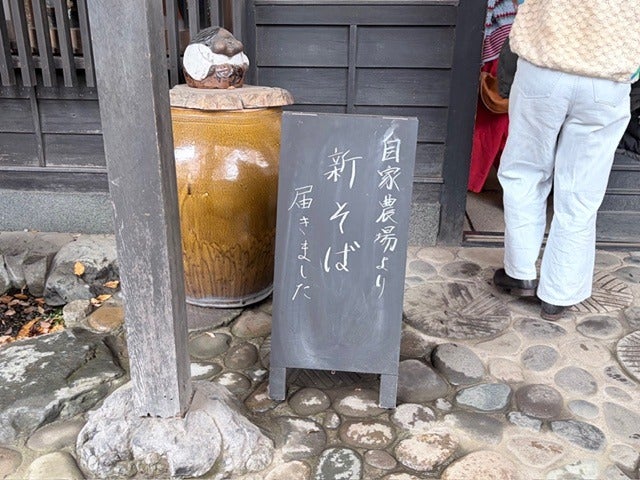 自家農場より
新そば
届きました